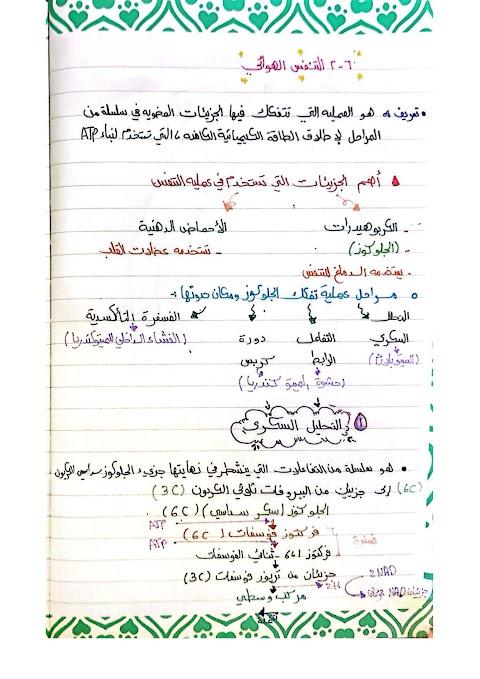 ٦-٢ التنفس الهوائي
• تعريفه هو العملية التي تتفكك فيها الجزيئات العضوية في سلسلة من
المراحل لإطلاق الطاقة الكيميائية الكامنة، التي تستخدم لبناء ATP
أهم الجزيئات التي تستخدم في عملية التنفس
الكربوهيدرات الأحماض الدهنية
(الجلوكوز) - تستخدمه عضلات القلب
- يستخدمه الدماغ للتنفس
مراحل عملية تفكك الجلوكوز ومكان حدوثها:-
التحلل التفاعل دورة الفسفرة التأكسدية
السكري الرابط كربس (الغشاء الداخلي للميتوكندريا)
(السيتوبلازم) (حشوة الميتوكندريا)
① التحليل السكري
• هو سلسلة من التفاعلات التي ينشطر في نهايتها جزيء الجلوكوز سداسي الكربون
(6C) إلى جزيئين من البيروفات ثلاثي الكربون (3C)
الجلوكوز (سكر سداسي) (6C)
ATP
فركتوز فوسفات (6C) فسفرة
ATP
فركتوز 1،6 - ثنائي الفوسفات
جزيئان من تريوز فوسفات (3C) 2NAD
2H جزيئان NAD
مركب وسطي